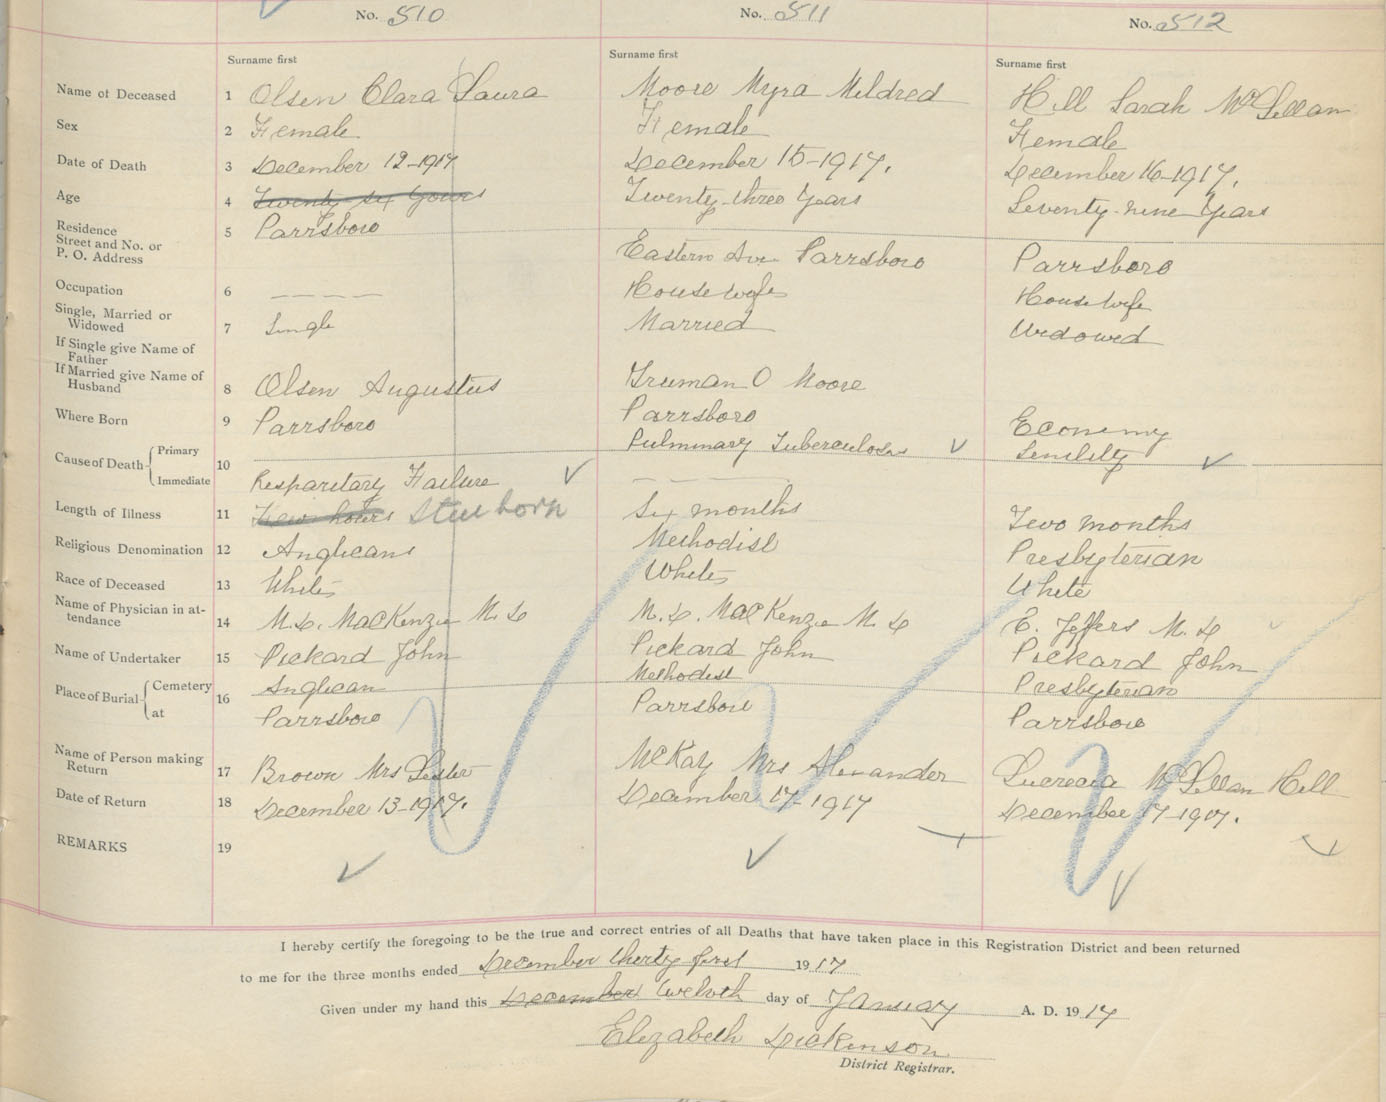 No. 510 No. 511 No. 512
Surname first Surname first Surname first
Name of Deceased 1 Olsen Clara Laura Moore Myra Mildred Hill Sarah McLellan
Sex 2 Female Female Female
Date of Death 3 December 12-1917 December 15-1917. December 16-1917.
Age 4 Twenty six Years Twenty-three Years Seventy-nine Years
Residence
Street and No. or
P. O. Address 5 Parrsboro Eastern Ave Parrsboro Parrsboro
Occupation 6 ---- Housewife Housewife
Single, Married or
Widowed 7 Single Married Widowed
If Single give Name of
Father
If Married give Name of
Husband 8 Olsen Augustus Truman O Moore
Where Born 9 Parrsboro Parrsboro Economy
Cause of Death Primary 10 Pulminary Tuberculosis Senility
Immediate Resparitary Failure ----
Length of Illness 11 Few hours Still born Six months Two months
Religious Denomination 12 Anglican Methodist Presbyterian
Race of Deceased 13 White White White
Name of Physician in at-
tendance 14 M.D. MacKenzie M.D M.D. MacKenzie M.D E. Jeffers M.D
Name of Undertaker 15 Pickard John Pickard John Pickard John
Place of Burial Cemetery 16 Anglican Methodist Presbyterian
at Parrsboro Parrsboro Parrsboro
Name of Person making
Return 17 Brown Mrs Lester McKay Mrs Alexander Lucrecia McLellan Hill
Date of Return 18 December 13-1917. December 17-1917 December 17-1917.
REMARKS 19
I hereby certify the foregoing to be the true and correct entries of all Deaths that have taken place in this Registration District and been returned
to me for the three months ended December thirty first 1917
Given under my hand this December twelvth day of January A. D. 1917
Elizabeth Dickinson
District Registrar.